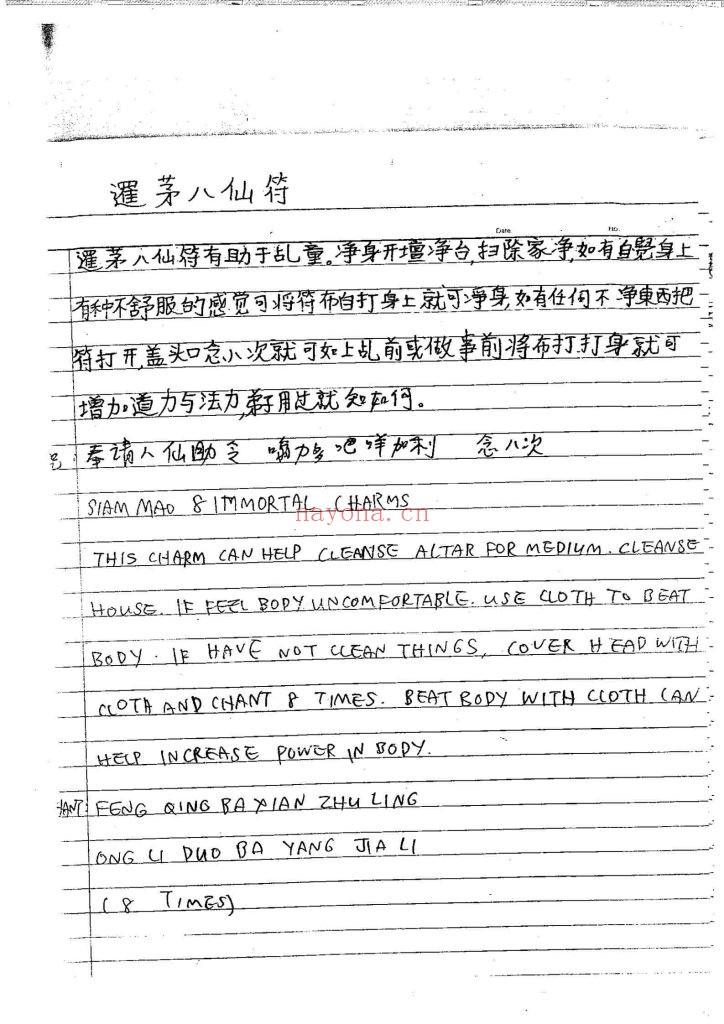 暹茅八仙符
Date. No.
暹茅八仙符有助于乩童。净身开壇净台,扫除家净,如有自覺身上
有种不舒服的感觉可将符布自打身上就可淨身,如有任何不净東西把
符打开,盖头口念八次就可如上乩前或做事前将布打打身就可
增加道力与法力,弟子用过就知如何。
奉请八仙助令 嗡力多吧咩加利 念八次
SIAM MAO 8 IMMORTAL CHARMS
hayona.cn
THIS CHARM CAN HELP CLEANSE ALTAR FOR MEDIUM. CLEANSE
HOUSE. IF FEEL BODY UNCOMFORTABLE. USE CLOTH TO BEAT
BODY. IF HAVE NOT CLEAN THINGS, COVER HEAD WITH
CLOTH AND CHANT 8 TIMES. BEAT BODY WITH CLOTH CAN
HELP INCREASE POWER IN BODY.
HANT: FENG QING BA XIAN ZHU LING
ONG LI DUO BA YANG JIA LI
(8 TIMES)